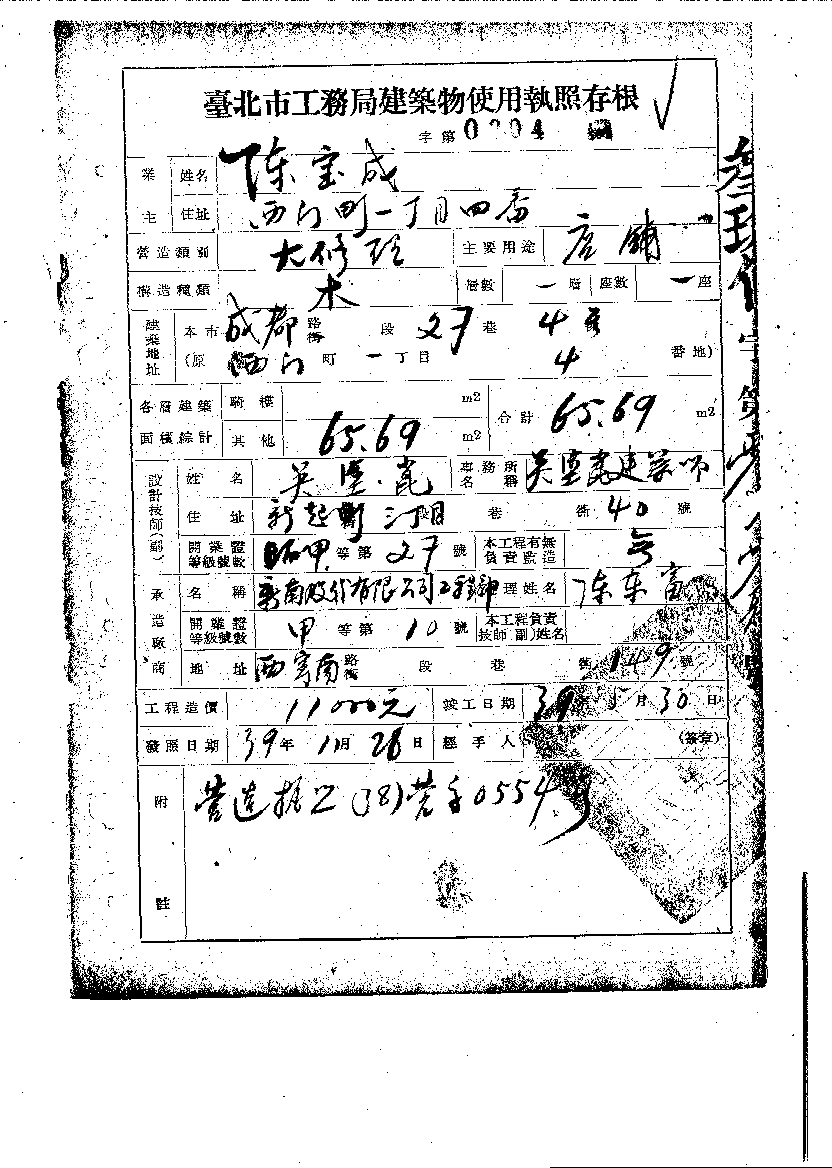 臺北市工務局建築物使用執照存根
字第0204號
業主 姓名 陈宝成
住址 西门町一丁目四番
營造類別 大修理 主要用途 店鋪
構造種類 木 層數 一層 座數 一座
建築地址 本市 成都 路街 段 27巷 4号
(原 西门 町 一丁目 4 番地)
各層建築面積綜計 騎樓 m2 合計 65.69 m2
其他 65.69 m2
設計技師(副) 姓名 吴 事務所名稱
住址 新起町 巷 街 40 號
開業證等級號數 甲等第27號 本工程有無負責監造
承造廠商 名稱 南股份有限公司工程部 理姓名 陈东富
開業證等級號數 甲等第10號 本工程負責技師(副)姓名
地址 西寧南 路街 段 巷 街 149 號
工程造價 11000元 竣工日期 39年5月30日
發照日期 39年11月28日 經手人 (簽章)
附註 營造執照(38)營字0554号